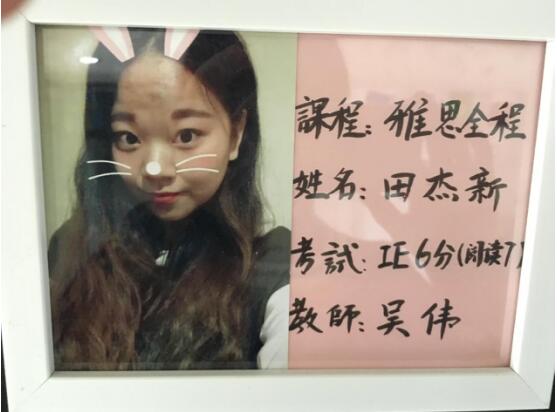 課程：雅思全程
姓名：田杰新
考試：IE6分(阅读7)
教師：吴伟